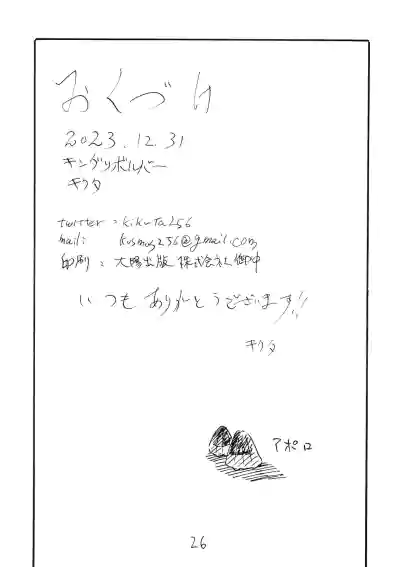 おくづけ
2023.12.31
キングリボルバー
キクタ
twitter = kikuta256
mail: kosmos256@gmail.com
印刷: 大陽出版 株式会社 御中
いつもありがとうございます!!
キクタ
アポロ
26